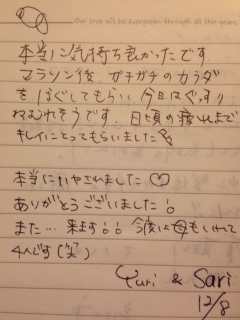 Our love will be evergreen through all the years.
本当に気持ち良かったです
マラソン後、ガチガチのカラダ
をほぐしてもらい、今日はぐっすり
ねむれそうです。日頃の疲れまで
キレイにとってもらいました
本当にいやされました♡
ありがとうございました!
また…来ます!! 今度は母もいれて
4人です(笑)
Yuri & Sari
12/8